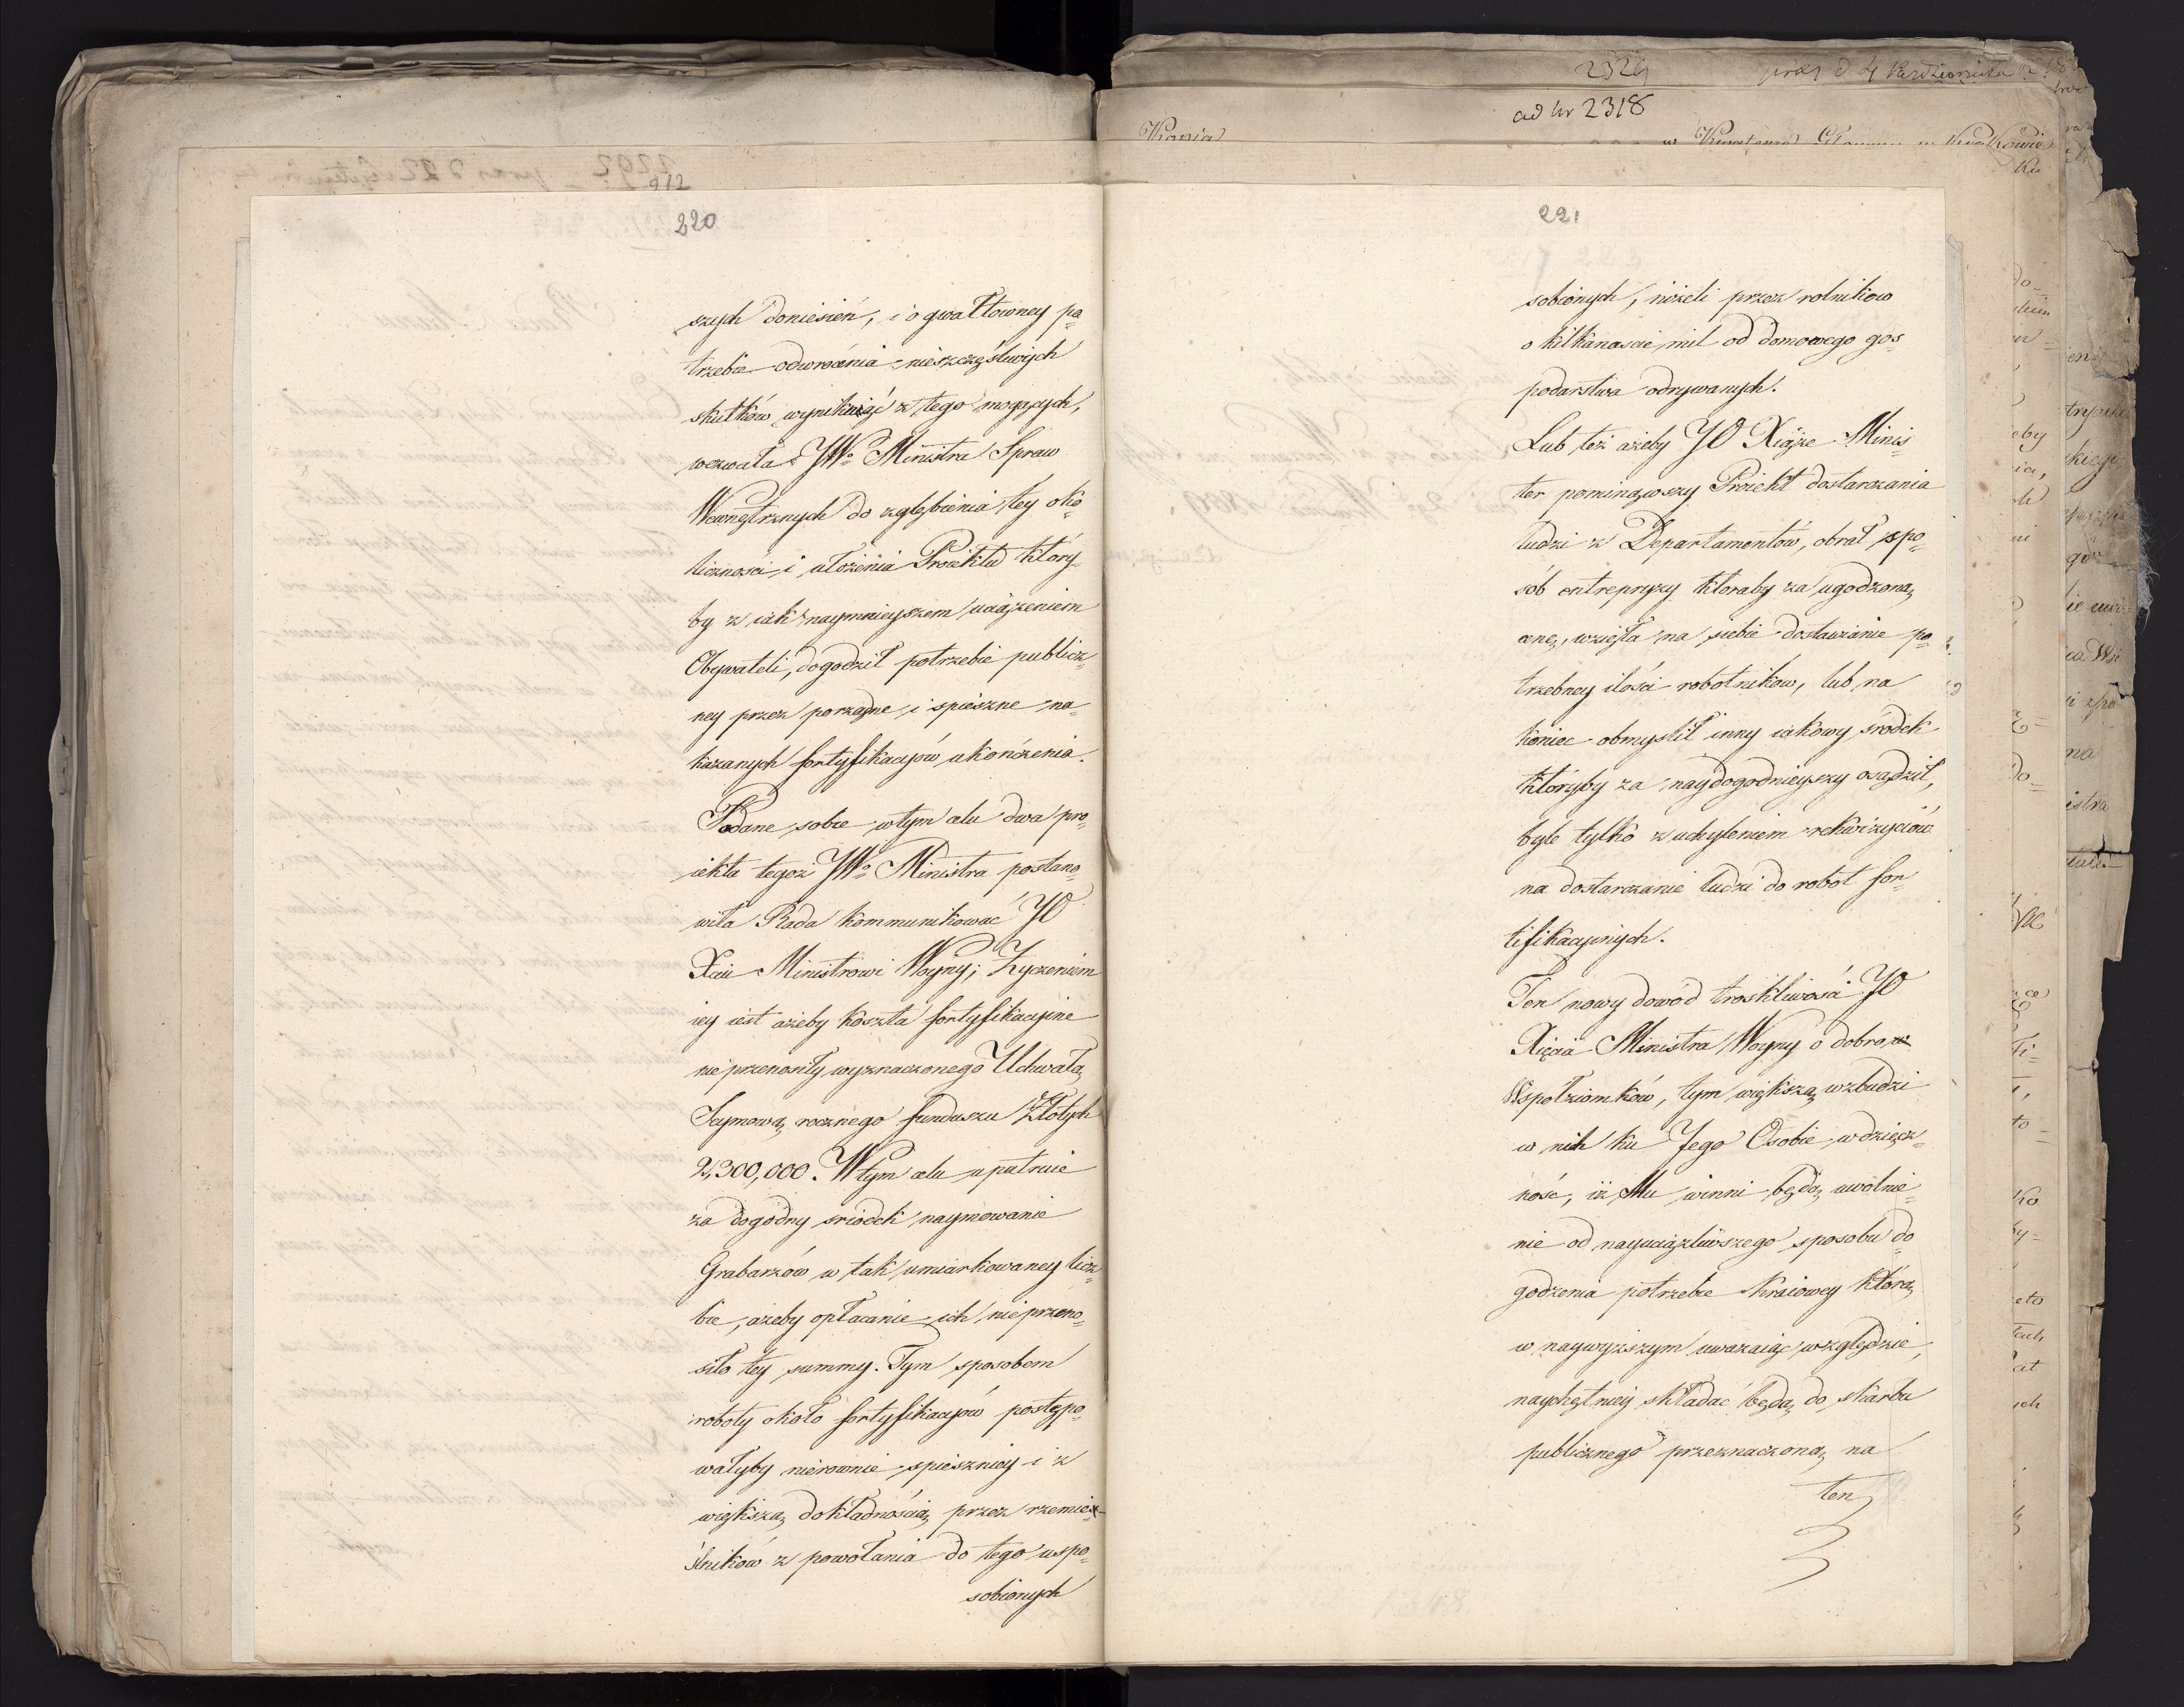 912
220
szych doniesień, i o gwałtowney po=
trzebie odwrócenia nieszczęśliwych
skutków wyniknąć z tego mogących,
wezwała JWo Ministra Spraw
Wewnętrznych do zgłębienia tey oko=
liczności i ułożenia Proiektu który=
by z iak naymnieyszem uciążeniem
Obywateli, dogodził potrzebie publicz=
ney przez porządne i spieszne na=
kazanych fortyfikacyów ukończenia.
Podane sobie w tym celu dwa pro=
iekta tegoż JWo Ministra postano=
wiła Rada kommunikować JO
Xciu Ministrowi Woyny; Życzeniem
iey iest ażeby koszta fortyfikacyine
nie przenosiły wyznaczonego Uchwałą
Seymową rocznego funduszu Złotych
2,300,000. W tym celu upatruie
za dogodny srzodek naymowanie
Grabarzów w tak umiarkowaney licz=
bie, ażeby opłacanie ich nie przeno=
siło tey summy. Tym sposobem
roboty około fortyfikacyów postępo=
wałyby nierownie spieszniey i z
większą dokładnością przez rzemie=
ślników z powołania do tego uspo=
sobionych
2329
ad Nr 2318
Kopia
221
sobionych, niżeli przez rolników
o kilkanascie mil od domowego gos=
podarstwa odrywanych.
Lub też ażeby JO Xiąże Minis=
ter pominąwszy Proiekt dostarczania
ludzi z Departamentów, obrał spo=
sób entrepryzy ktoraby za ugodzoną
cenę, wzięła na siebie dostawianie po=
trzebney ilości robotnikow, lub na
koniec obmyślił inny iakowy środek
któryby za naydogodnieyszy osądził,
byle tylko z uchyleniem rekwizyciów
na dostarczanie ludzi do robot for=
tifikacyinych.
Ten nowy dowód troskliwości JO
Xięcia Ministra Woyny o dobro
Współziomków, tym większą wzbudzi
w nich ku Jego Osobie wdzięcz=
ność, iż Mu winni będą uwolnie=
nie od nayuciążliwszego sposobu do=
godzenia potrzebie kraiowey którą
w naywyższym uważaiąc względzie,
naychętniey składać będą do skarbu
publicznego przeznaczoną na
ten